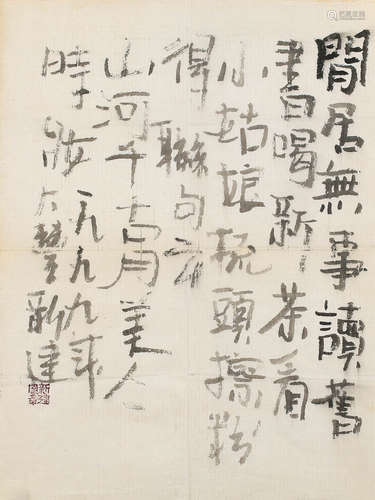 閒居無事讀舊
書喝新茶看
小姑娘梳頭擦粉
得聯句云
山河千古月美人
時妝
一九九九年
大豐新建